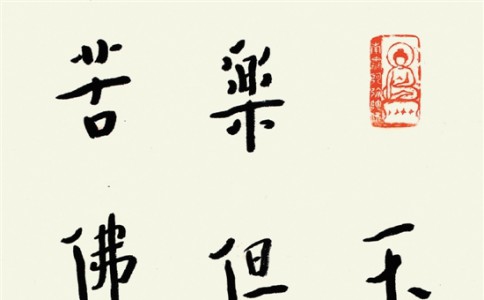 不
樂但
苦佛